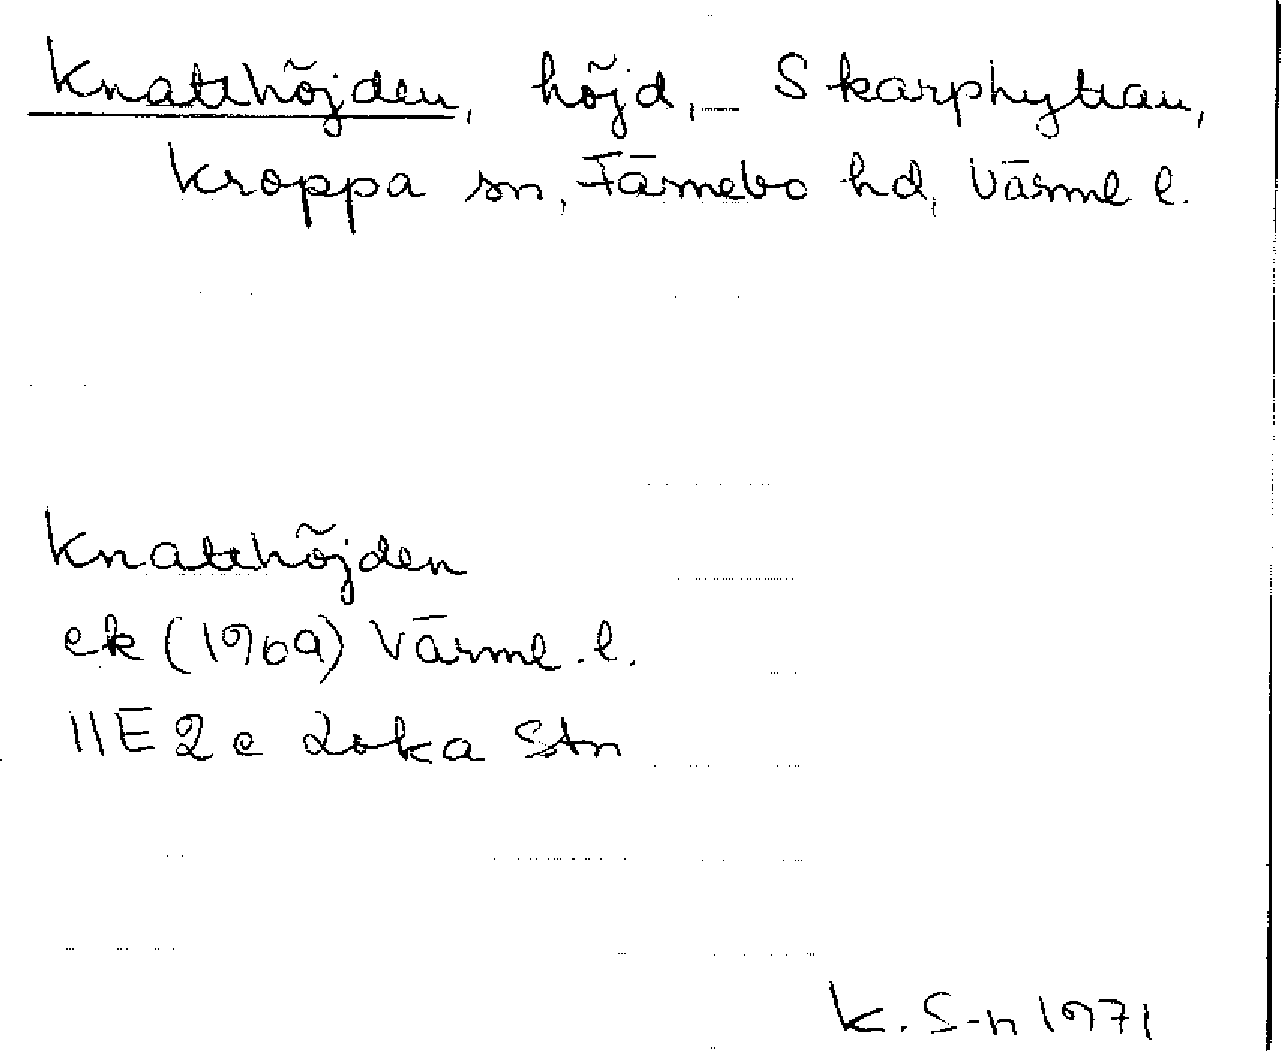 Knatthöjden, höjd, Skarphyttan,
Kroppa sn, Färnebo hd, Värml l.
Knatthöjden
ek (1969) Värml. l.
11E2c Loka Stn
K. S-n 1971